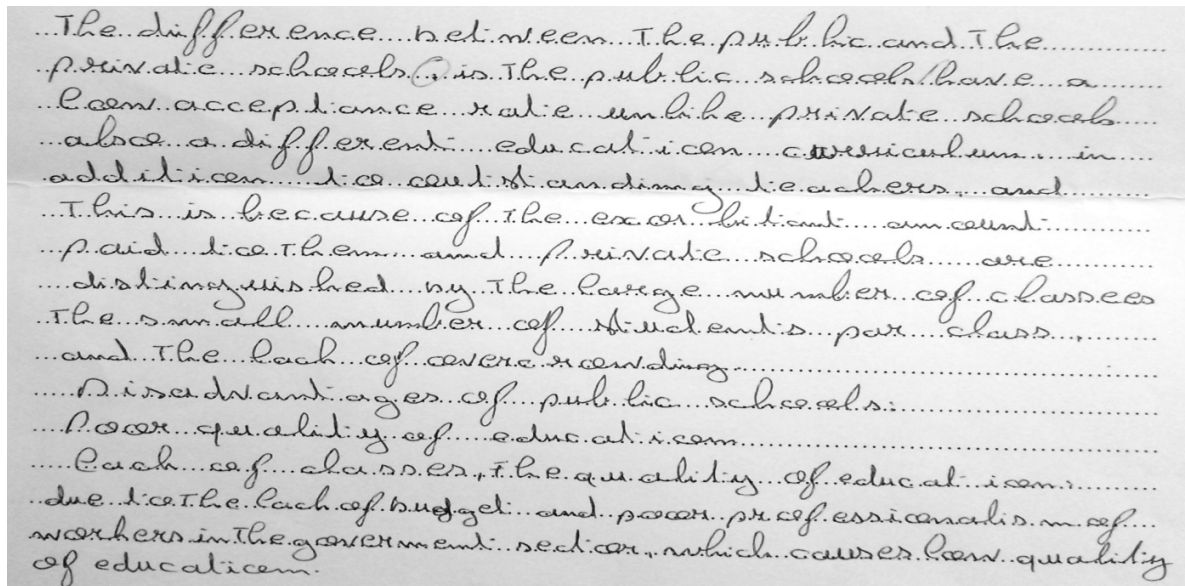 The difference between The public and The
private schools, is The public schools have a
low acceptance rate unlike private schools
also a different education curriculum. in
addition to outstanding teachers. and
This is because of The exorbitant amount
paid to Them and private schools are
distinguished by The large number of classees
The small number of students par class,
and The lack of overcrowding
Disadvantages of public schools:
Poor quality of education
Lack of classes, The quality of education:
due to The lack of budget and poor professionalism of
workers in The goverment sector, which causes low quality
of education.